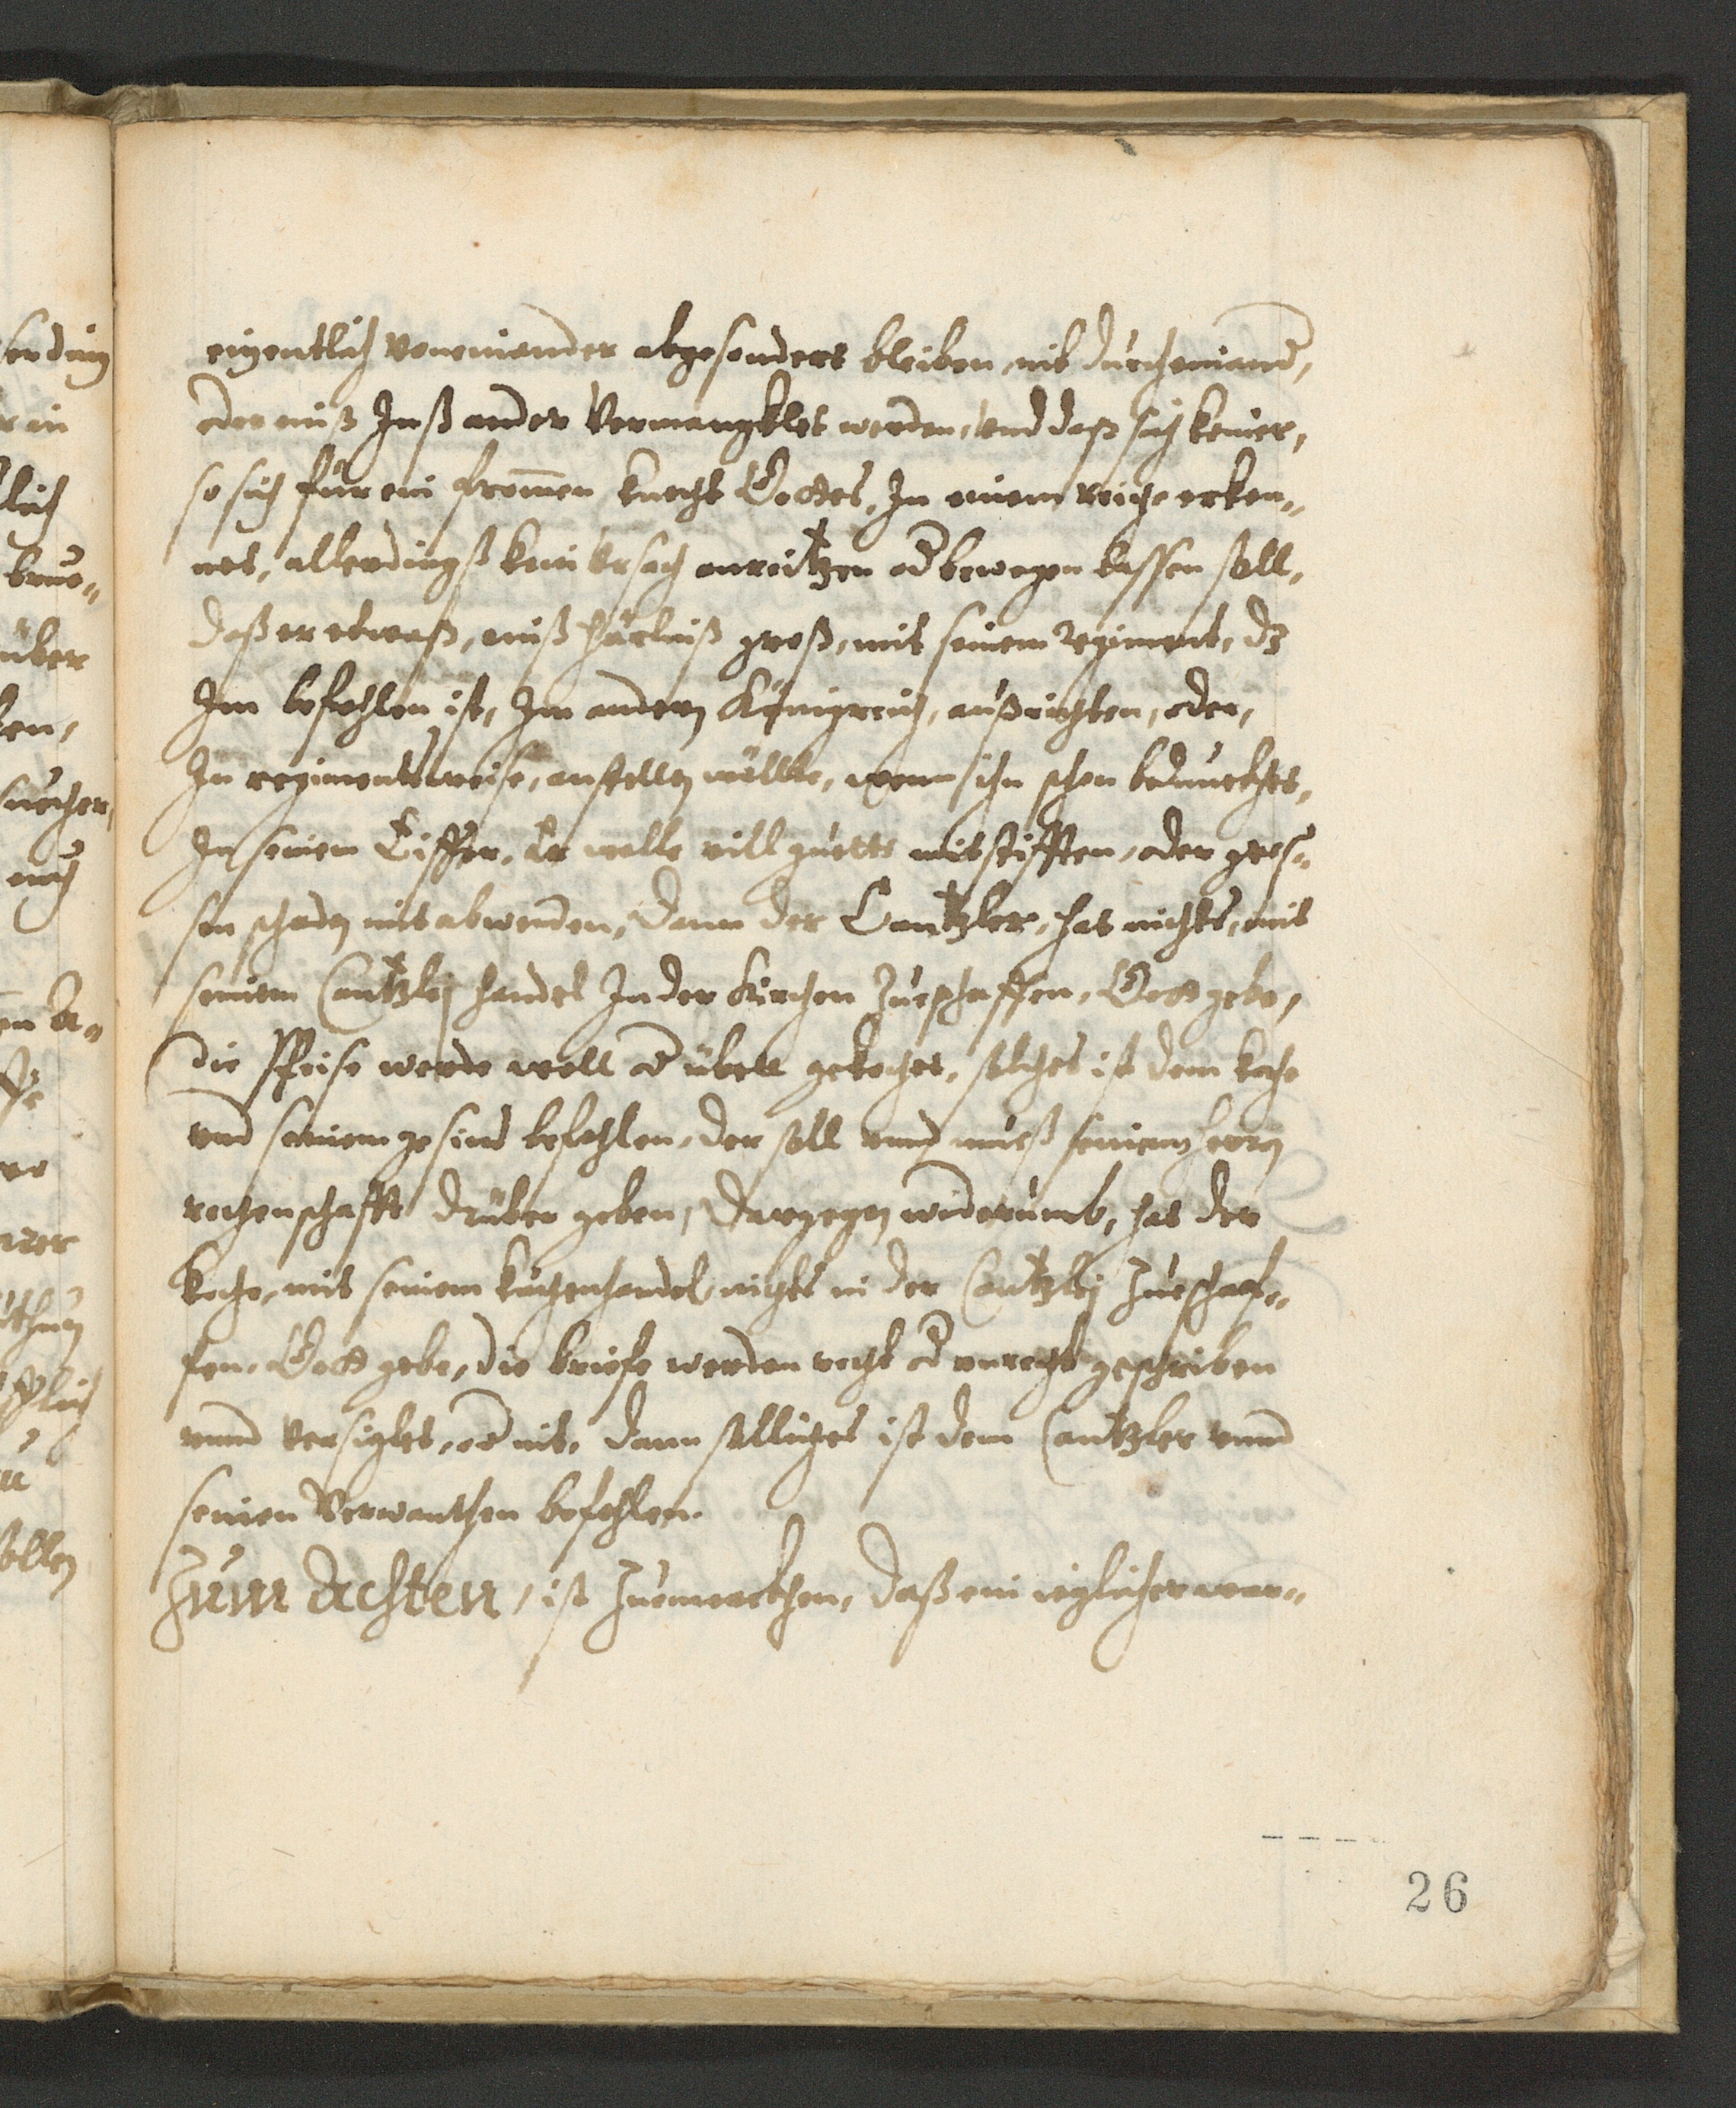 eigentlich voneinander abgesondert bleiben, nit durcheinand,
oder einß Inß ander Vermangklet werden, vnd daß sich keiner,
so sich für ein from̅en knecht Gottes, In einem reiche erken¬
net, allerdingß kein Vrsach anreitzen od bewegen lassen soll,
daß er etwaß, eniß härlniß groß, mit seinem Regiment, dz
Im befohlen ist, Im andern Königreich, außrichten, oder,
In regimentsweise, anstellen wöllte, wenn ihn schon bedunckhet,
In seinem Eiffer, Er wolle vill guetts mit stifften, oder gros¬
sen schaden mit abwenden, Dann der Cantzler, hat nichts, mit
seinem Cantzlej handel In der Kirchen Zueschaffen, Gott gebe,
die Speise werde woll od übell gekochet, solches ist dem koche
vnd seinem gesind befohlen, der soll vnnd mueß seinem herrn
rechenschafft drüber geben, Dargegen widerumb, hat der
koche, mit seinem kuchenhandel nichts in der Cantzlej Zueschaf¬
fen, Gott gebe, die briefe werden recht od vnrecht geschriben
vnnd Versiglet, od nit, dann sölliches ist dem Cantzler vnnd
seinen Verwanthen befohlen.
Zum Achten, ist Zuemerckhen, daß ein ieglicher war¬
26